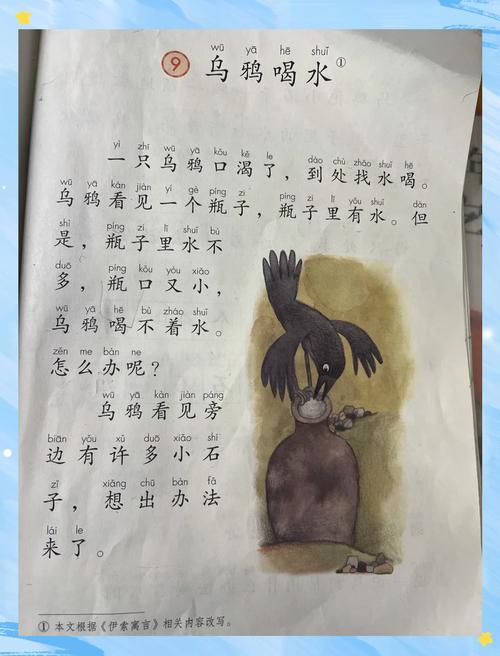 wū yā hē shuǐ
9 乌鸦喝水①
yì zhī wū yā kǒu kě le dào chù zhǎo shuǐ hē
一只乌鸦口渴了，到处找水喝。
wū yā kàn jiàn yí gè píng zi píng zi lǐ yǒu shuǐ dàn
乌鸦看见一个瓶子，瓶子里有水。但
shì píng zi lǐ shuǐ bù
是，瓶子里水不
duō píng kǒu yòu xiǎo
多，瓶口又小，
wū yā hē bù zháo shuǐ
乌鸦喝不着水。
zěn me bàn ne
怎么办呢？
wū yā kàn jiàn páng
乌鸦看见旁
biān yǒu xǔ duō xiǎo shí
边有许多小石
zǐ xiǎng chū bàn fǎ
子，想出办法
lái le
来了。
① 本文根据《伊索寓言》相关内容改写。